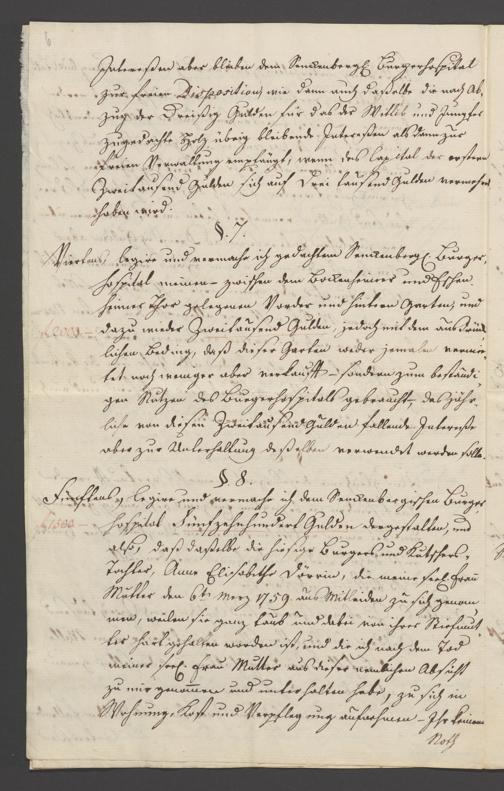 6
Interessen aber bleiben dem Senckenbergl. Burgerhospital
zur freien Disposition, wie dann auch dasselbe die nach Ab,
zug der Dreißig Gulden für das der Wittib und Jungfer
zugedachte Holz übrig bleibende Interessen alsdann zur
freien Verwaltung empfängt, wenn das Capital der erstern
Zweitausend Gulden sich auf Drei tausend Gulden vermehrt
haben wird.
§. 7.
Viertens, legire und vermache ich gedachtem Senckenbergl. Burger,
hospital meinen zwischen dem Bockenheimer und Eschen,
heimer Thor gelegenen Vorder und hintern Garten, und
dazu wieder Zweitausend Gulden, jedoch mit dem ausdrück
lichen Beding, daß dieser Garten weder jemalen vermie,
tet noch weniger aber verkauft sondern zum beständi,
gen Nutzen des Burgerhospitals gebraucht, das jähr,
liche von diesen Zweitausend Gulden fallende Interesse
aber zur Unterhaltung desselben verwendet werden solle.
§ 8.
Fünftens, legire und vermache ich dem Senckenbergischen Burger
f1500 hospital Fünfzehnhundert Gulden dergestalten, und
also, daß dasselbe die hiesige Burgers und Kutschers,
Tochter, Anna Elisabetha Dörrin, die meine seel. Frau
Mutter den 6t. Merz 1759. aus Mitleiden zu sich genom,
men, weilen sie ganz taub und dabei von ihrer Stiefmut
ter hart gehalten worden ist, und die ich nach dem Tod
meiner seel. Frau Mutter aus dieser nemlichen Absicht
zu mir genommen und unterhalten habe, zu sich in
Wohnung, Kost und Verpflegung aufnehmen Ihr
Noth